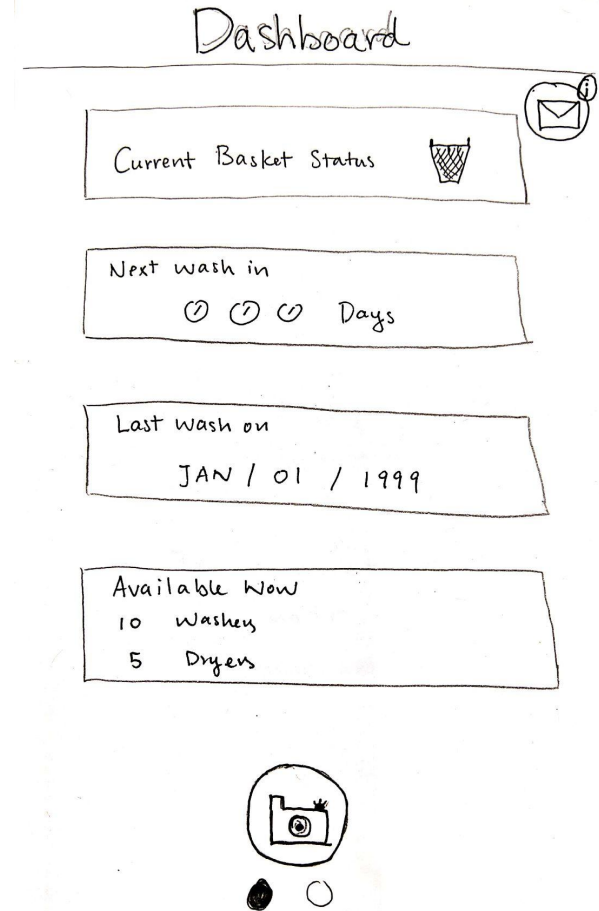 Dashboard
i
Current Basket Status
Next wash in
0 0 0 Days
Last wash on
JAN / 01 / 1999
Available Now
10 Washers
5 Dryers